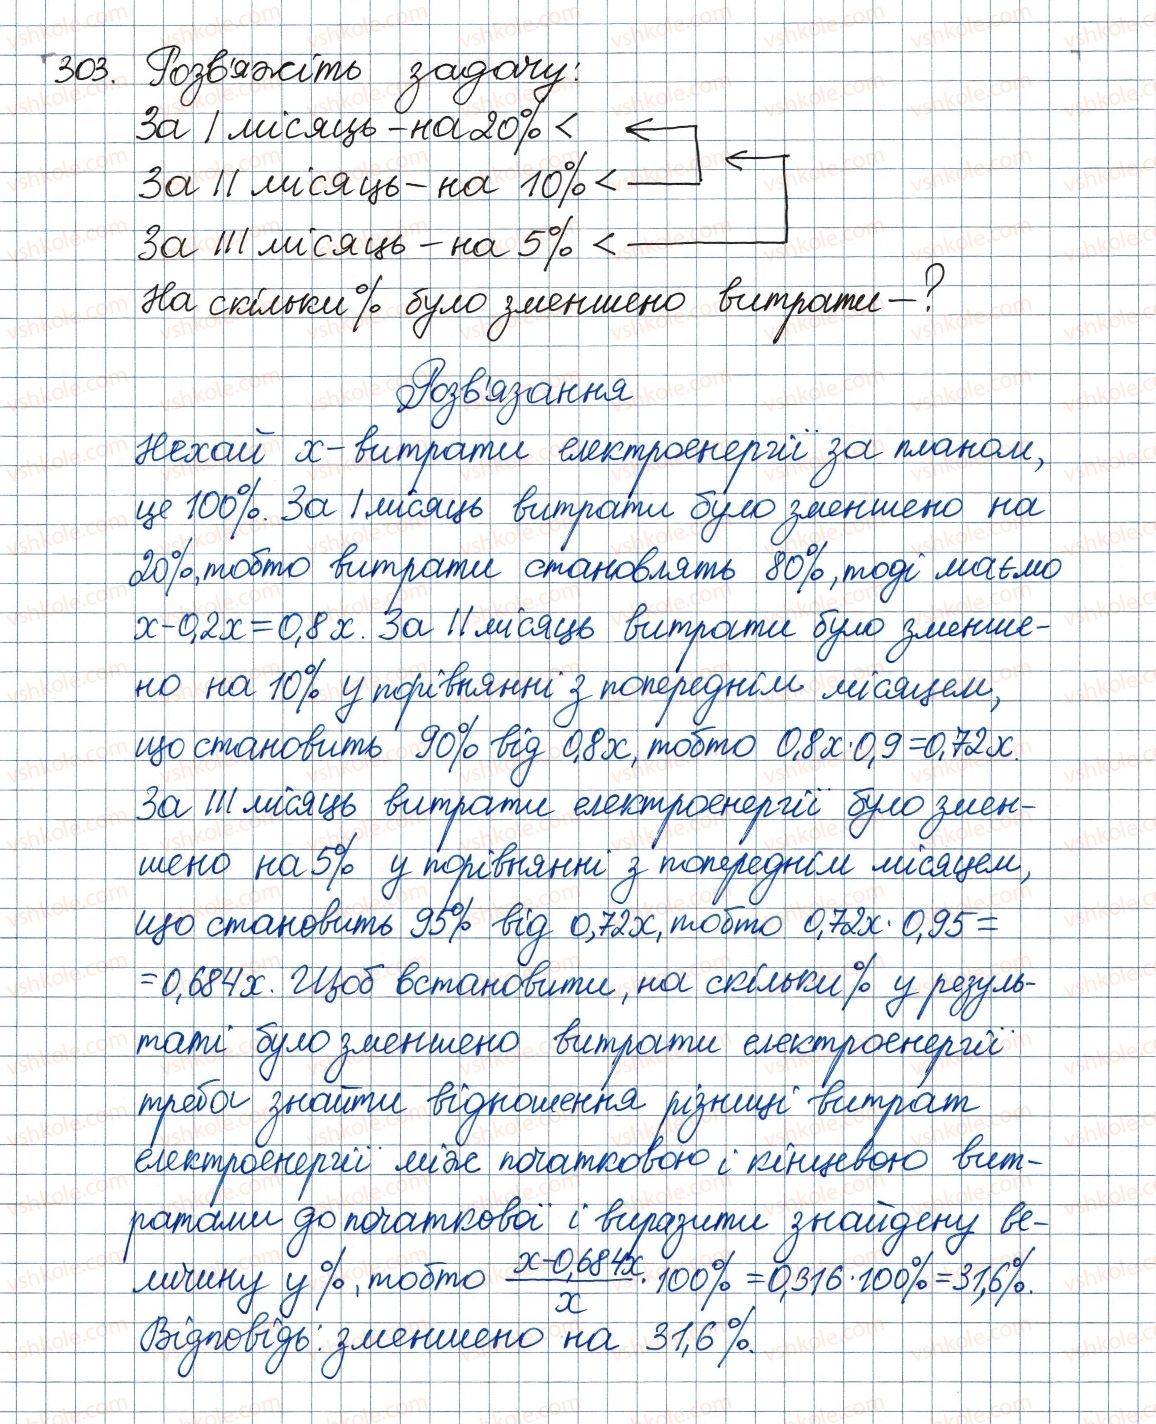 303. Розв'яжіть задачу:
За I місяць – на 20% <
За II місяць – на 10% <
За III місяць – на 5% <
На скільки % було зменшено витрати – ?
Розв'язання
Нехай x – витрати електроенергії за планом,
це 100%. За I місяць витрати було зменшено на
20%, тобто витрати становлять 80%, тоді маємо
x-0,2x=0,8x. За II місяць витрати було зменше-
но на 10% у порівнянні з попереднім місяцем,
що становить 90% від 0,8x, тобто 0,8x·0,9=0,72x.
За III місяць витрати електроенергії було змен-
шено на 5% у порівнянні з попереднім місяцем,
що становить 95% від 0,72x, тобто 0,72x·0,95=
=0,684x. Щоб встановити, на скільки % у резуль-
таті було зменшено витрати електроенергії
треба знайти відношення різниці витрат
електроенергії між початковою і кінцевою вит-
ратами до початкової і виразити знайдену ве-
личину у %, тобто (x-0,684x)/x · 100% = 0,316·100% = 31,6%.
Відповідь: зменшено на 31,6%.